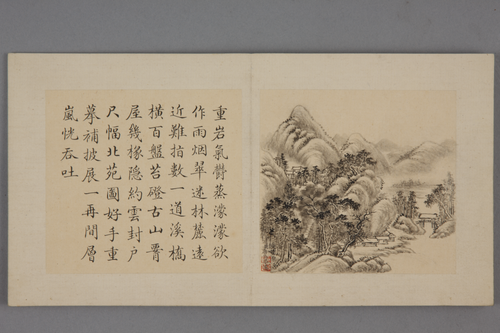 重岩氣鬱蒸濛濛欲
作雨烟翠迷林麓遠
近難指數一道溪橋
橫百盤苔磴古山
屋幾椽隱約雲封戶
尺幅北苑圖好手重
摹補披展一再間層
嵐恍吞吐